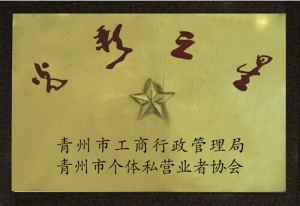 光彩之星
青州市工商行政管理局
青州市个体私营业者协会